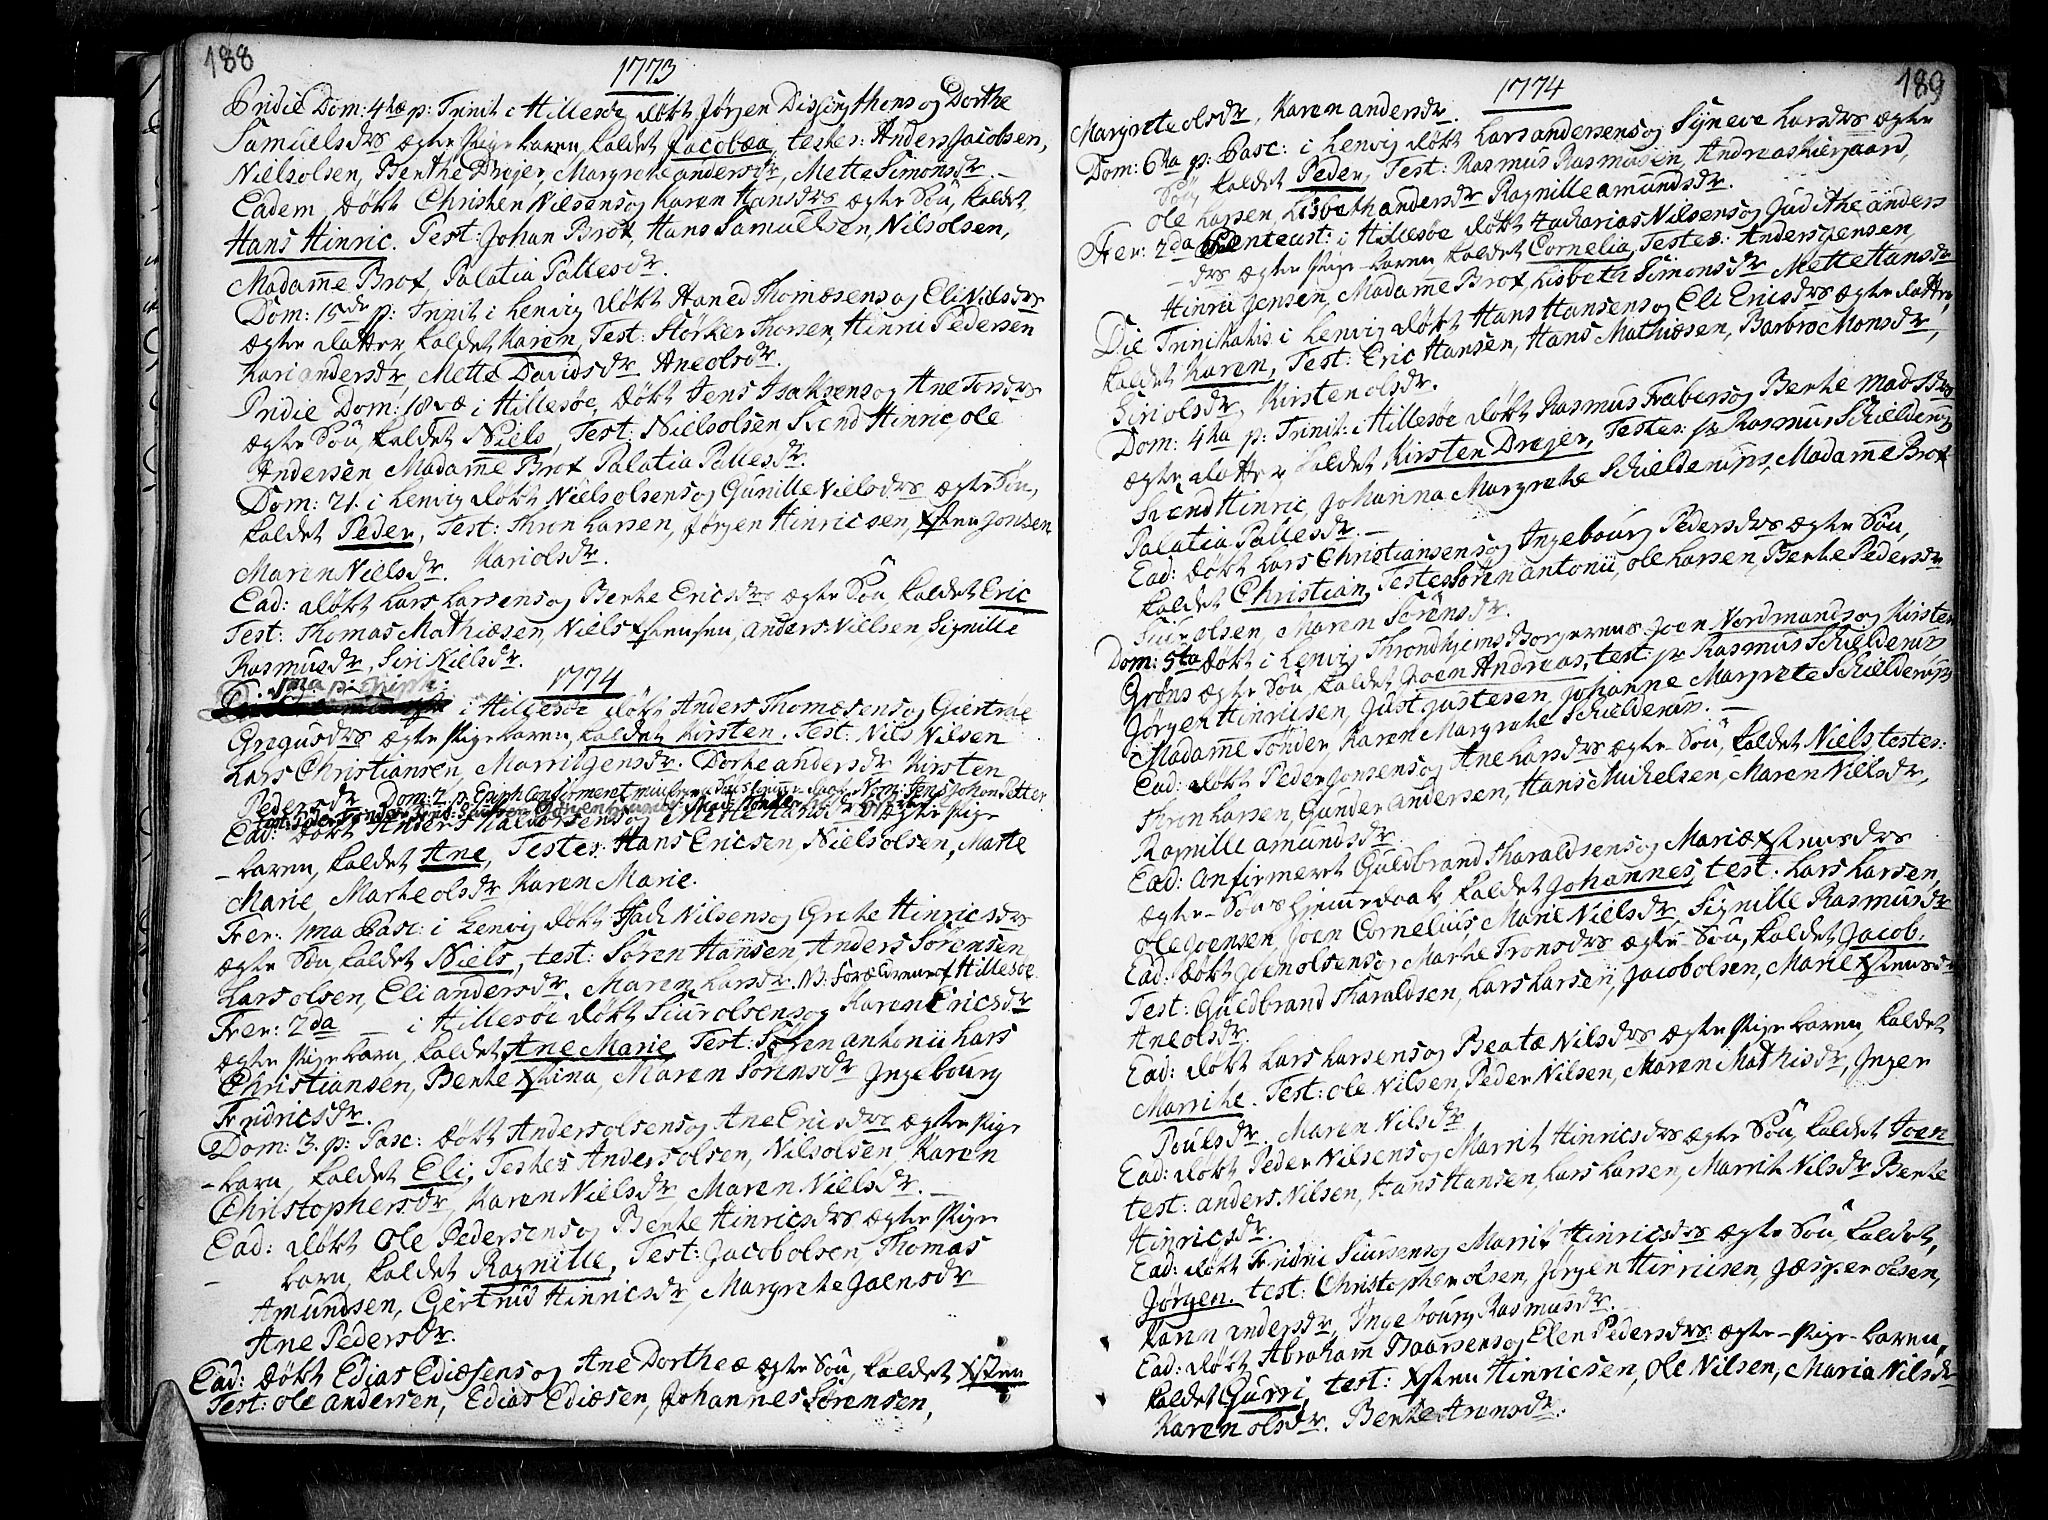 188
1773
Pridie Dom: 4tæ p: Trinit i Hillesöe döbt Jörgen Dissingthens og Dorthe
Samuelsdrs ægte Pige barn, kaldet Jacobæa, testes: Anders Jacobsen,
Niels olsen, Berthe Drejer, Margrete andersdr, Mette Simonsdr. -
Eadem, döbt Christen Nilsens og Karen Hansdrs ægte Sön, kaldet
Hans Hinric. Test: Johan Brox, Hans Samuelsen, Nils olsen,
Madame Brox, Palatia Pallesdr.
Dom: 15de p: Trinit i Lenvig döbt Haned Thomæsens og Eli Nielsdrs
ægte datter, kaldet Karen, Test: Störker Thorsen, Hinric Pedersen
Kari andersdr, Mette Davidsdr. Ane olsdr.
Pridie Dom: 18væ i Hillesöe, döbt Jens Isaksens og Ane Torsdrs
ægte Sön, kaldet Niels, Test: Niels olsen Svend Hinric, ole
Andersen Madame Brox Palatia Pallesdr.
Dom: 21. i Lenvig döbt Niels olsens og Gunille Nielsdrs ægte Sön,
kaldet Peder, Test: Thron Larsen, Jörgen Hinricsen, Xsten Jonsen
Maren Nielsdr. Kari olsdr.
Ead: döbt Lars Larsens og Berte Ericsdrs ægte Sön, kaldet Eric
Test: Thomas Mathiæsen, Niels Xstensen, Anders Nielsen, Signille
Rasmusdr, Siri Nielsdr.
1774
Dom: 1ma p: Epiph: i Hillesöe döbt Anders Thomæsens og Giertrue
Gregusdrs ægte Pige barn, kaldet Kirsten. Test: Nils Nilsen
Lars Christiansen, Marrit Jensdr. Dorte andersdr Kirsten
Pedersdr Dom: 2. p. Epiph Confirment hiemme daab Nom: Jens Johan Petter
Ead: döbt Anders Haldorsens og ægte Pige
- barn, kaldet Ane, Testes: Hans Ericsen, Niels olsen, Matte
Marie Marte olsdr Karen Marie.
Fer: 1ma Pasc: i Lenvig döbt Isach Nilsens og Grete Hinricsdrs
ægte Sön, kaldet Niels, test: Sören Hansen, Anders Sörensen
Lars olsen, Eli andersdr. Maren Larsdr. NB: Forældrene af Hillesöe.
Fer: 2da - i Hillesöe döbt Siur olsens og Karen Ericsdr
ægte Pige barn, kaldet Ane Marie Test: Sören antonii Lars
Christiansen, Bente Xstina, Maren Sörensdr Ingebourg
Fridricsdr.
Dom: 3. p: Pasc: döbt Anders olsens og Ane Ericsdrs ægte Pige
- barn, kaldet Eli, Testes Anders olsen, Nils olsen, Karen
Christophersdr, Karen Nielsdr Maren Nielsdr. -
Ead: döbt Ole Pedersens og Berte Hinricsdrs ægte Pige
- barn, kaldet Ragnille, Test: Jacob olsen Thomas
Amundsen, Gertrud Hinricsdr, Margrete Joensdr
Ane Pedersdr.
Ead: döbt Edias Ediæsens og Ane Dortheæ ægte Sön, kaldet Xsten
Test: ole andersen, Edias Ediæsen, Johannes Sörensen,
189
1774
Margrete olsdr, Karen andersdr.
Dom: 6ta p: Pasc: i Lenvig döbt Lars andersens og Syneve Larsdrs ægte
Sön, kaldet Peder, Test: Rasmus Rasmusen, Andreas Kiergaard,
ole Larsen, Lisbeth andersdr Ragnille amundsdr.
Fer: 2da Pentecost: i Hillesöe döbt Zacharias Nilsens og Judithe anders
- drs ægte Pige-barn kaldet Cornelia, Testes: Anders Jensen,
Hinric Jensen, Madame Brox, Lisbeth Simonsdr Mette Hansdr
Die Trinitatis i Lenvig döbt Hans Hansens og Eli Ericsdrs ægte datter,
kaldet Karen, Test: Eric Hansen, Hans Mathiæsen, Barbro Monsdr,
Siri olsdr, Kirsten olsdr.
Dom: 4ta p: Trinit: i Hillesöe döbt Rasmus Frabers og Berte Madsdrs
ægte datter kaldet Kirsten Drejer, Testes: hr Rasmus Schielderup
Svend Hinric, Johanna Margrete Schielderups, Madame Brox
Palatia Pallesdr. -
Ead: döbt Lars Christiansens og Ingebourg Pedersdrs ægte Sön,
kaldet Christian, Testes Sören antonii, ole Larsen, Berte Pedersdr
Siur olsen, Maren Sörensdr.
Dom: 5ta döbt i Lenvig Throndhjems Borgerens Joen Nordmands og Kirsten
Gröns ægte Sön, kaldet Joen Andreas, test: hr Rasmus Schielderup
Jörgen Hinricsen, Just Justesen, Johanne Margrete Schielderups
Madame Tönder, Karen Margrete Schielderup. -
Ead: döbt Peder Jonsens og Ane Larsdrs ægte Sön, kaldet Niels, testes:
Thron Larsen, Gunder Andersen, Hans Michelsen, Maren Nielsdr,
Ragnille amundsdr
Ead: Confirmeret Guldbrand Tharaldsens og Mariæ Xstensdrs
ægte-Söns hjemmedaab, kaldet Johannes, test: Lars Larsen,
Ole Joensen, Joen Cornelius, Marie Nielsdr, Signille Rasmusdr
Ead: döbt Joen olsens og Marte Tronsdrs ægte-Sön, kaldet Jacob.
Test: Guldbrand Tharaldsen, Lars Larsen, Jacob olsen, Marie Xstensdr
Ane olsdr.
Ead: döbt Lars Larsens og Beatæ Nilsdrs ægte Pige barn, kaldet
Marrite. Test: ole Nilsen, Peder Nilsen, Maren Mathisdr, Inger
Poulsdr. Maren Nilsdr
Ead: döbt Peder Nilsens og Marrit Hinricsdrs ægte Sön, kaldet Joen
test: anders Nilsen, Hans Hansen, Lars Larsen, Marrit Nilsdr Berte
Hinricsdr.
Ead: döbt Fridric Siursens og Marrit Hinricsdrs ægte Sön, kaldet,
Jörgen. test: Christopher olsen, Jörgen Hinricsen, Jæsper olsen,
Karen andersdr, Ingebourg Rasmusdr.
Ead: döbt Abraham Baarsens og Elen Pedersdrs ægte-Pige-barn,
kaldet Gurri, test: Xsten Hinricsen, Ole Nilsen, Maria Nilsdr
Karen olsdr. Berte Aronsdr.